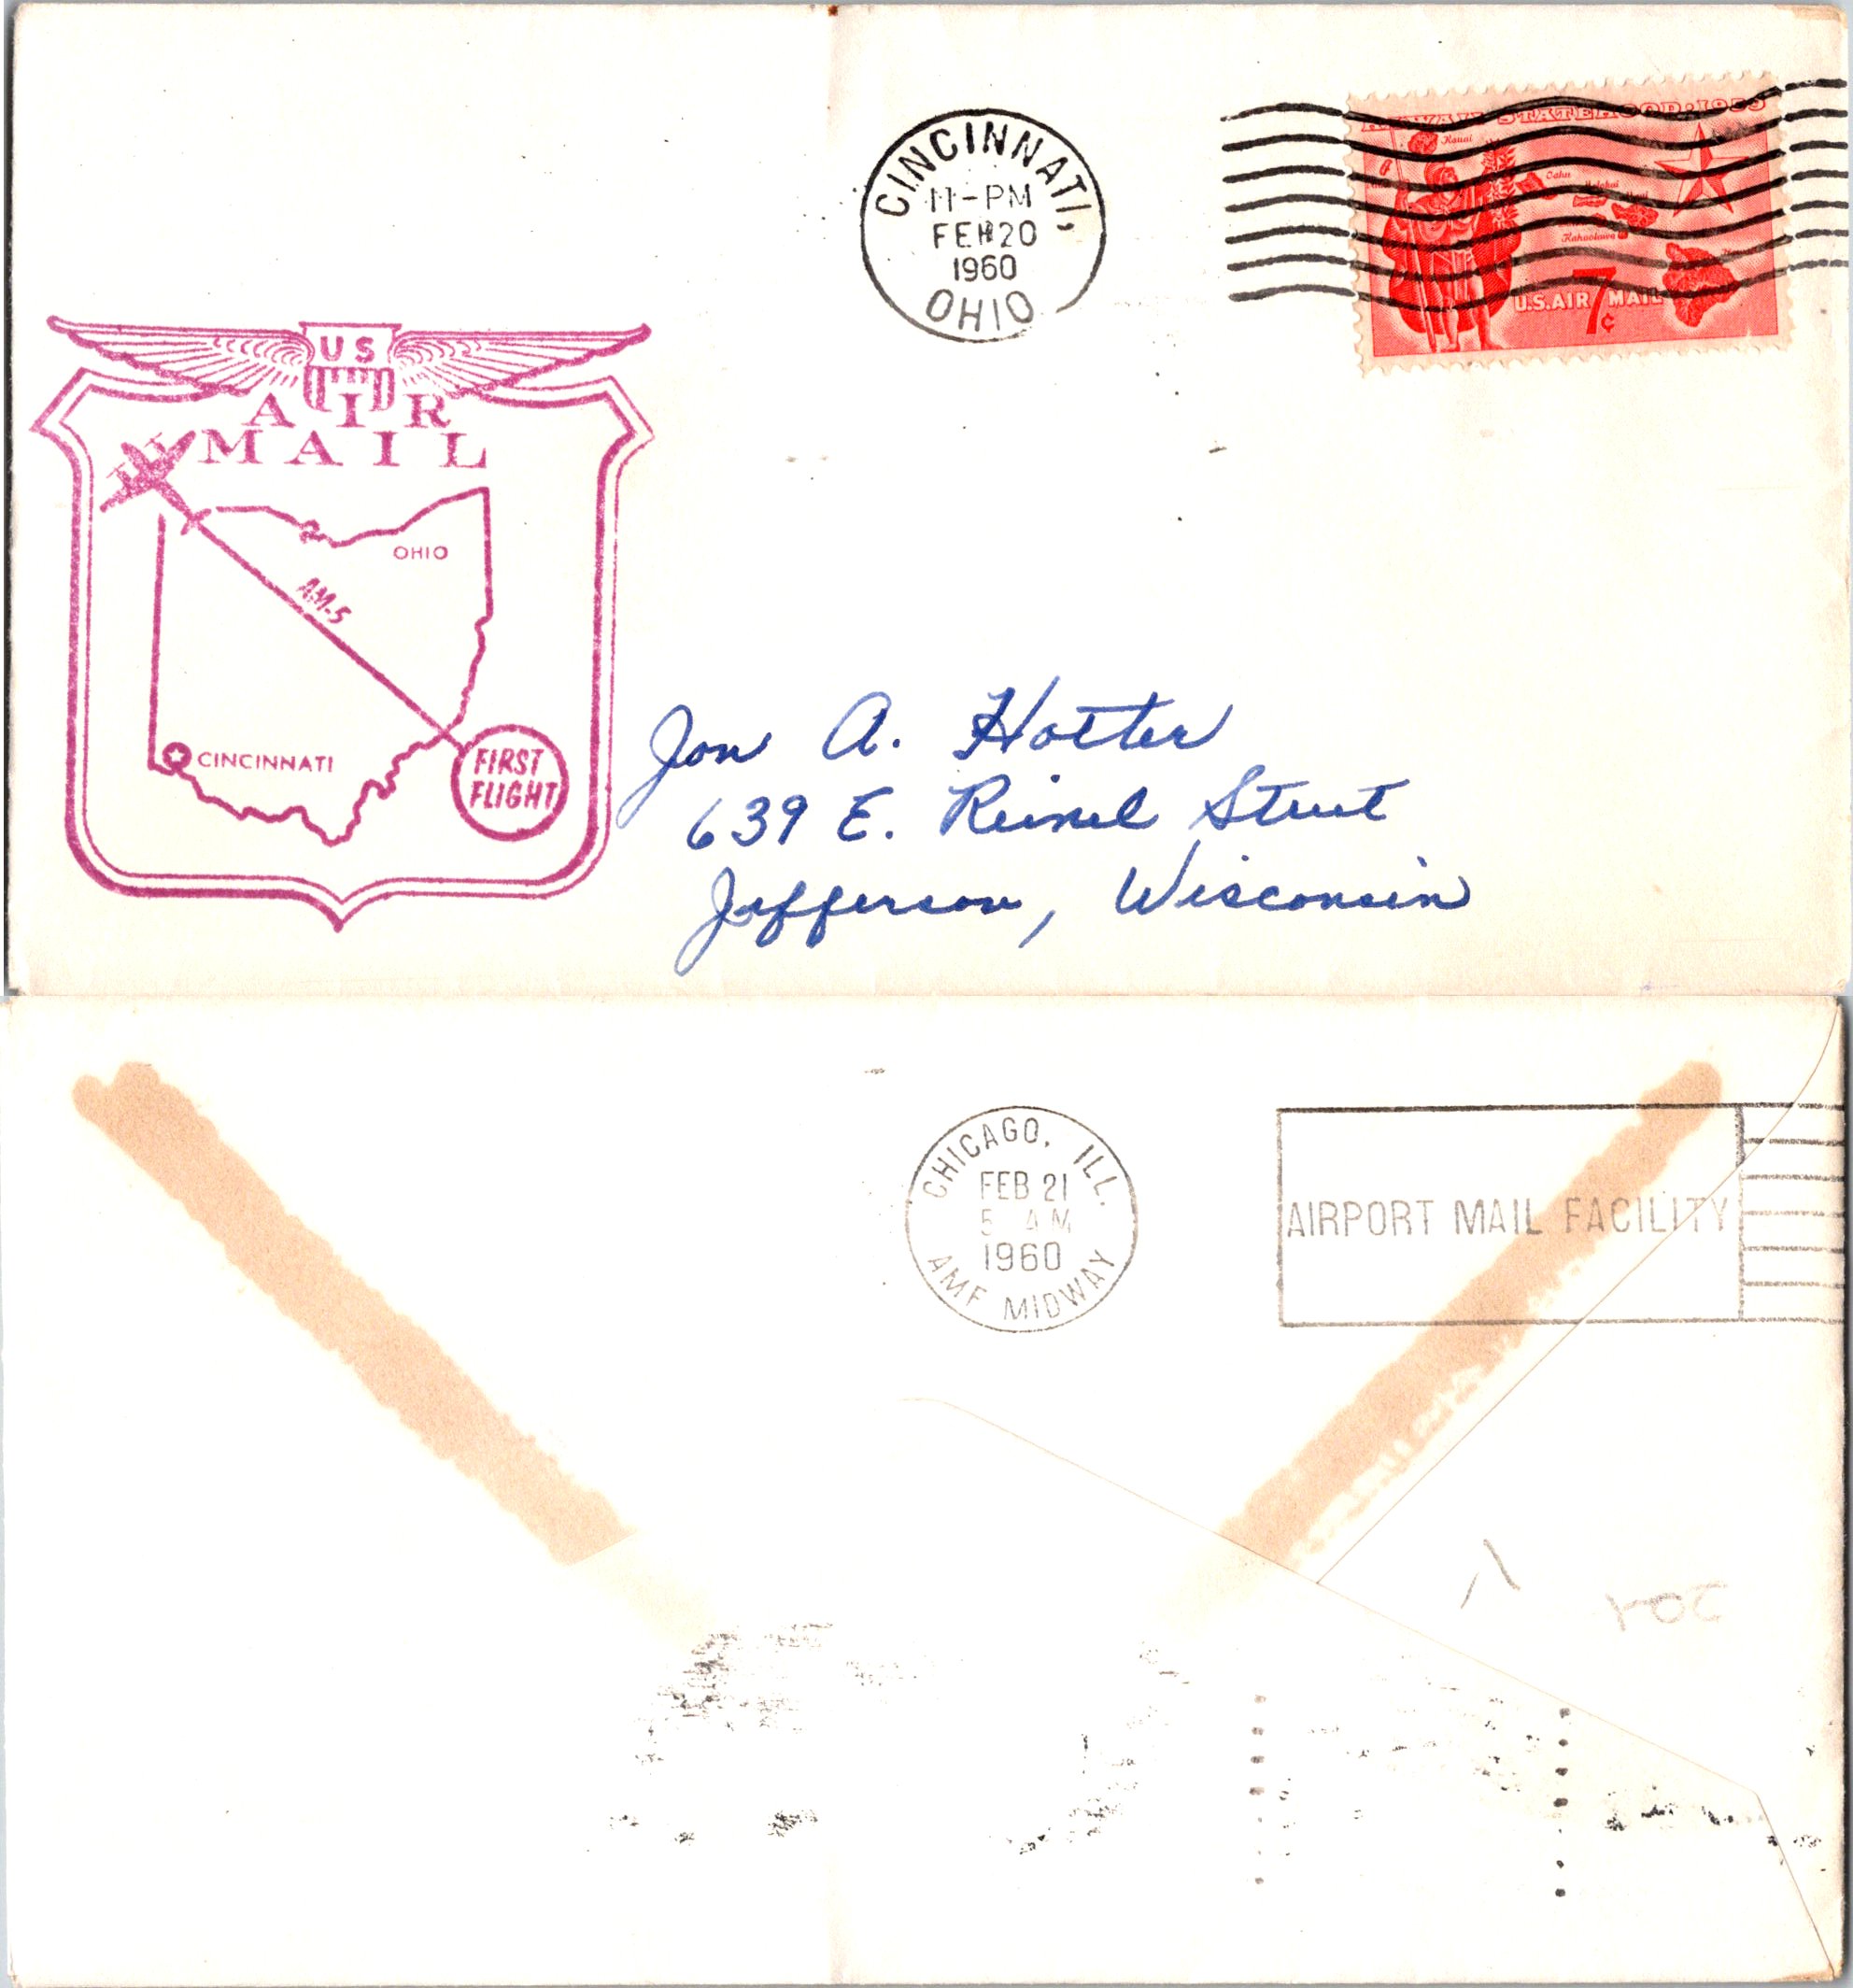 CINCINNATI,
11-PM
FEB 20
1960
OHIO
HAWAII STATEHOOD·1959
Kauai
Oahu
Molokai
Maui
Kahoolawe
Hawaii
U.S. AIR MAIL
7¢
US
AIR
MAIL
OHIO
AM-5
CINCINNATI
FIRST
FLIGHT
Jon A. Hotter
639 E. Reinel Street
Jefferson, Wisconsin
CHICAGO, ILL.
FEB 21
5 AM
1960
AMF MIDWAY
AIRPORT MAIL FACILITY